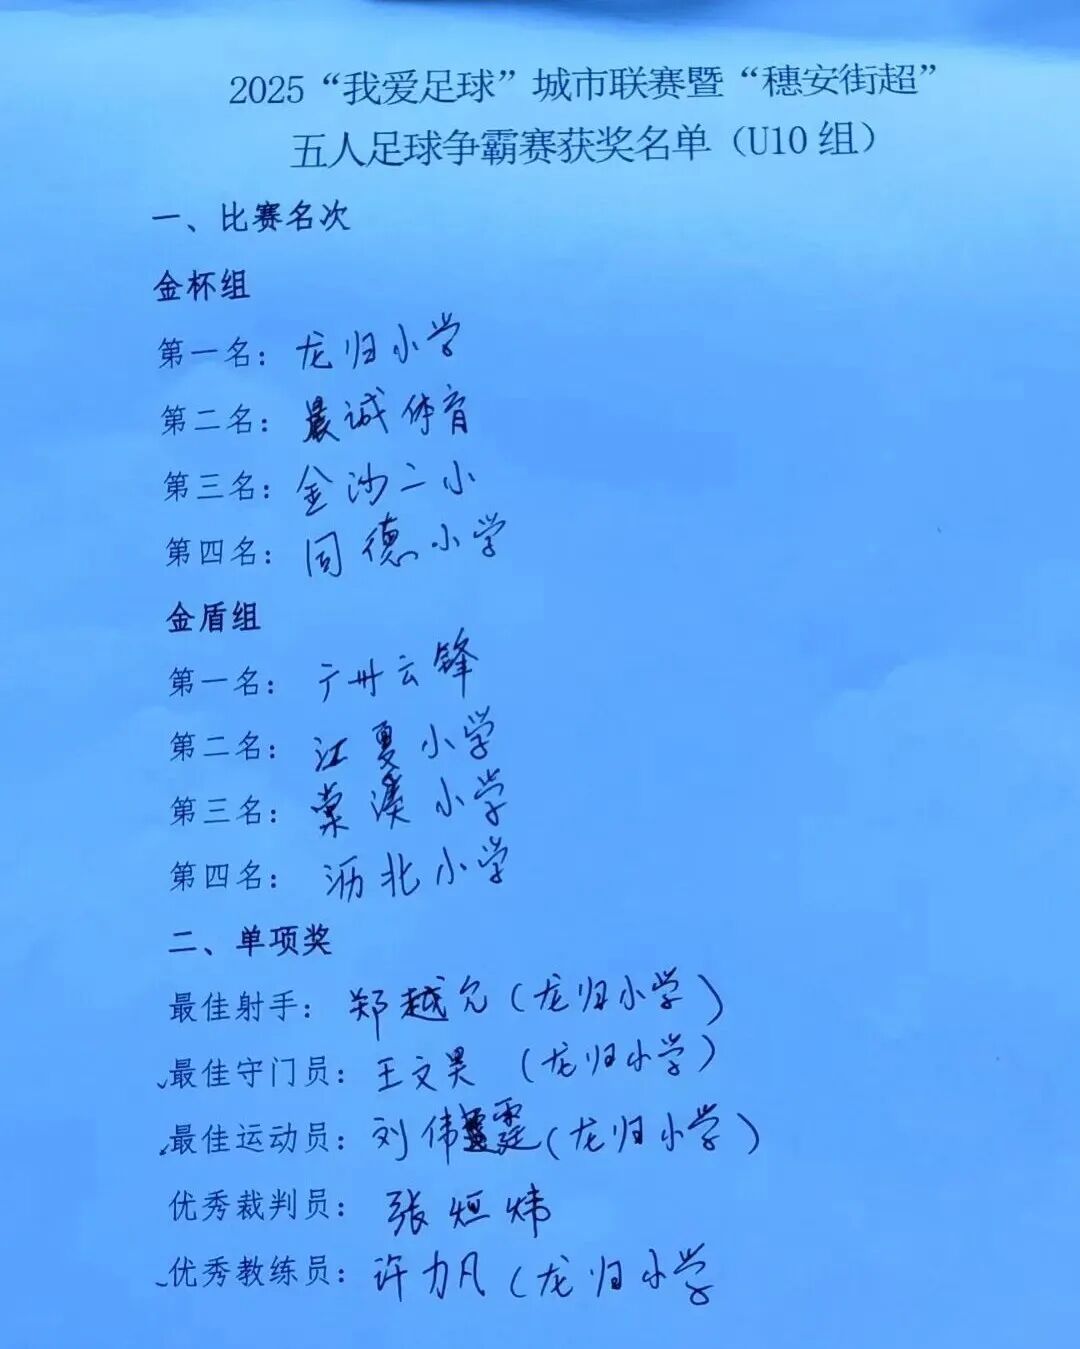 2025“我爱足球”城市联赛暨“穗安街超”
五人足球争霸赛获奖名单（U10 组）
一、比赛名次
金杯组
第一名：龙归小学
第二名：晨诚体育
第三名：金沙二小
第四名：同德小学
金盾组
第一名：广州云锋
第二名：江夏小学
第三名：棠溪小学
第四名：沥北小学
二、单项奖
最佳射手：郑越允（龙归小学）
最佳守门员：王文昊（龙归小学）
最佳运动员：刘伟霆（龙归小学）
优秀裁判员：张烜炜
优秀教练员：许力凡（龙归小学